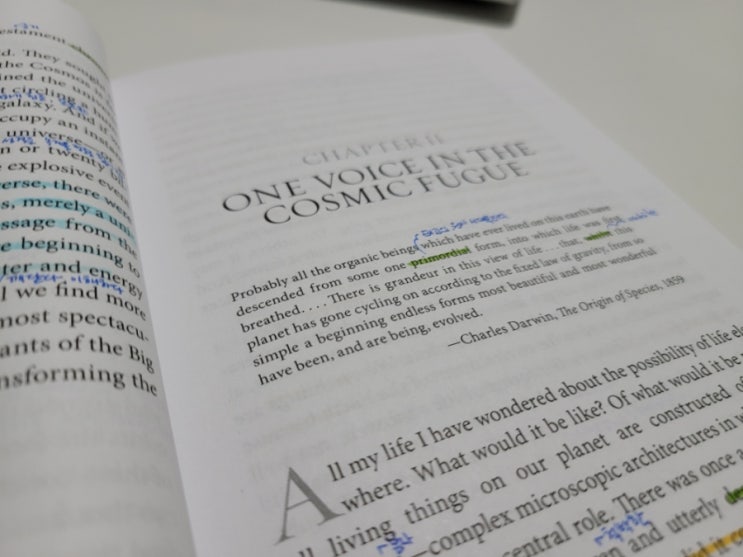 estament
d. They sough
the Cosmos
ined the un
t circling a
galaxy. And if
ccupy an insta
universe, or
n or twenty bil
explosive even
erse, there were
s, merely a uni
ssage from the
e beginning to
ter and energy
l we find more
most spectacu-
ants of the Big
nsforming the
CHAPTER II
ONE VOICE IN THE
COSMIC FUGUE
Probably all the organic beings which have ever lived on this earth have
descended from some one primordial form, into which life was first
breathed. . . . There is grandeur in this view of life . . . that, this
planet has gone cycling on according to the fixed law of gravity, from so
simple a beginning endless forms most beautiful and most wonderful
have been, and are being, evolved.
—Charles Darwin, The Origin of Species, 1859
All my life I have wondered about the possibility of life el
where. What would it be like? Of what would it be
living things on our planet are constructed of
—complex microscopic architectures in w
central role. There was once a
and utterly de